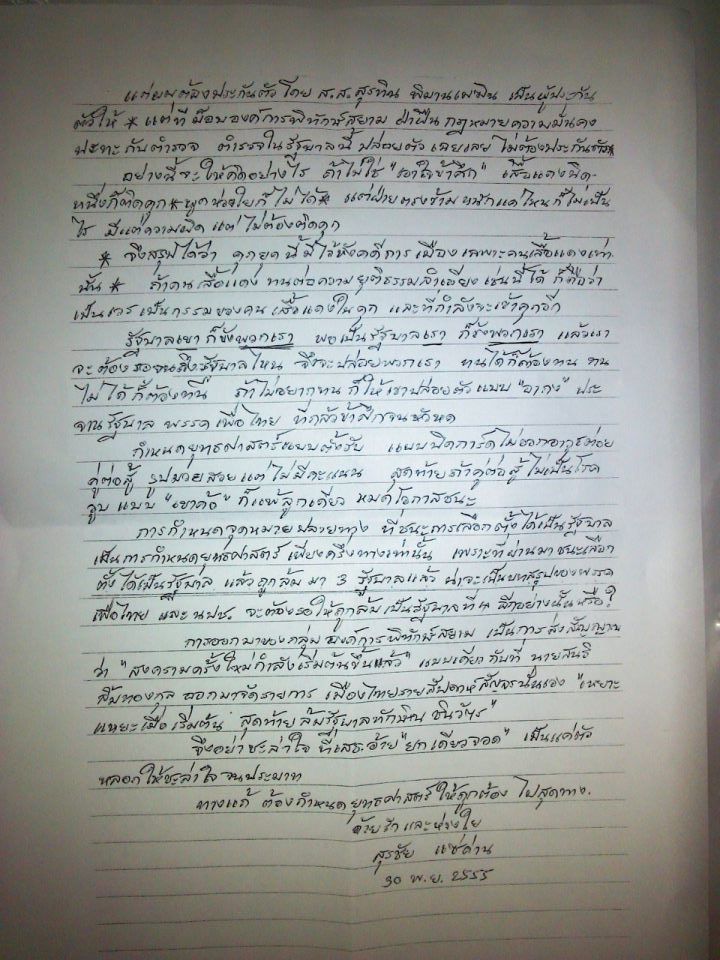 แต่ผมต้องประกันตัวโดย ส.ส. สุรทิน พิมานเมฆินทร์ เป็นผู้ประกัน
ตัวให้ * แต่ที ม็อบองค์การพิทักษ์สยาม ฝ่าฝืน กฎหมายความมั่นคง
ปะทะกับตำรวจ ตำรวจในรัฐบาลนี้ ปล่อยตัว เฉยเลย ไม่ต้องประกันตัว*
อย่างนี้จะให้คิดอย่างไร ถ้าไม่ใช่ "เอาใจข้าศึก" เสื้อแดงผิด
หนึ่งก็ติดคุก * พูดห่อใยก็ไม่ได้* แต่ฝ่ายตรงข้าม หนักแค่ไหนก็ไม่เป็น
ไร มีแต่ความผิด แต่ไม่ต้องติดคุก
* จึงสรุปได้ว่า คุกยุคนี้มีไว้ขังคดีการเมืองเฉพาะคนเสื้อแดงเท่า
นั้น * ถ้าคนเสื้อแดง ทนต่อความยุติธรรมลำเอียงเช่นนี้ได้ ก็ถือว่า
เป็นเวรเป็นกรรมของคนเสื้อแดงในคุก และที่กำลังจะเข้าคุกอีก
รัฐบาลเขา ก็ขังพวกเรา พอเป็นรัฐบาลเรา ก็ขังพวกเรา แล้วเรา
จะต้องรอจนถึงรัฐบาลไหน จึงจะปล่อยพวกเรา ทนได้ก็ต้องทน ทน
ไม่ได้ก็ต้องทน ถ้าไม่อยากทน ก็ให้เขาปล่อยตัวแบบ "อากง" ประ
จานรัฐบาล พรรคเพื่อไทย ที่กลัวข้าศึกจนหัวหด
กำหนดยุทธศาสตร์แบบตั้งรับ แบบปิดการ์ดไม่ออกอาวุธต่อย
คู่ต่อสู้ รูปมวยสวยแต่ไม่มีคะแนน สุดท้ายถ้าคู่ต่อสู้ไม่เป็นโรค
วูบ แบบ "เขาค้อ" ก็แพ้ลูกเดียว หมดโอกาสชนะ
การกำหนดจุดหมายปลายทาง ที่ชนะการเลือกตั้งได้เป็นรัฐบาล
เป็นการกำหนดยุทธศาสตร์ เพียงครึ่งทางเท่านั้น เพราะที่ผ่านมาชนะเลือก
ตั้งได้เป็นรัฐบาล แล้วถูกล้มมา 3 รัฐบาลแล้ว น่าจะเป็นบทสรุปของพรรค
เพื่อไทย และ นปช. จะต้องรอให้ถูกล้มเป็นรัฐบาลที่ ๔ อีกอย่างนั้นหรือ?
การออกมาของกลุ่มองค์การพิทักษ์สยาม เป็นการส่งสัญญาณ
ว่า "สงครามครั้งใหม่กำลังเริ่มต้นขึ้นแล้ว" แบบเดียวกับที่ นายสนธิ
ลิ้มทองกุล ออกมาจัดรายการ เมืองไทยรายสัปดาห์สัญจรนั่นเอง "เหยาะ
แหยะเมื่อเริ่มต้น สุดท้าย ล้มรัฐบาลทักษิณ ชินวัตร"
จึงอย่าชะล่าใจ ที่เสธ.อ้าย "ยกเดียวจอด" เป็นแค่ตัว
หลอกให้ชะล่าใจ จนประมาท
ทางแก้ ต้องกำหนดยุทธศาสตร์ให้ถูกต้อง ไปสุดทาง.
ด้วยรักและห่วงใย
สุรชัย แซ่ด่าน
30 พ.ย. 2555